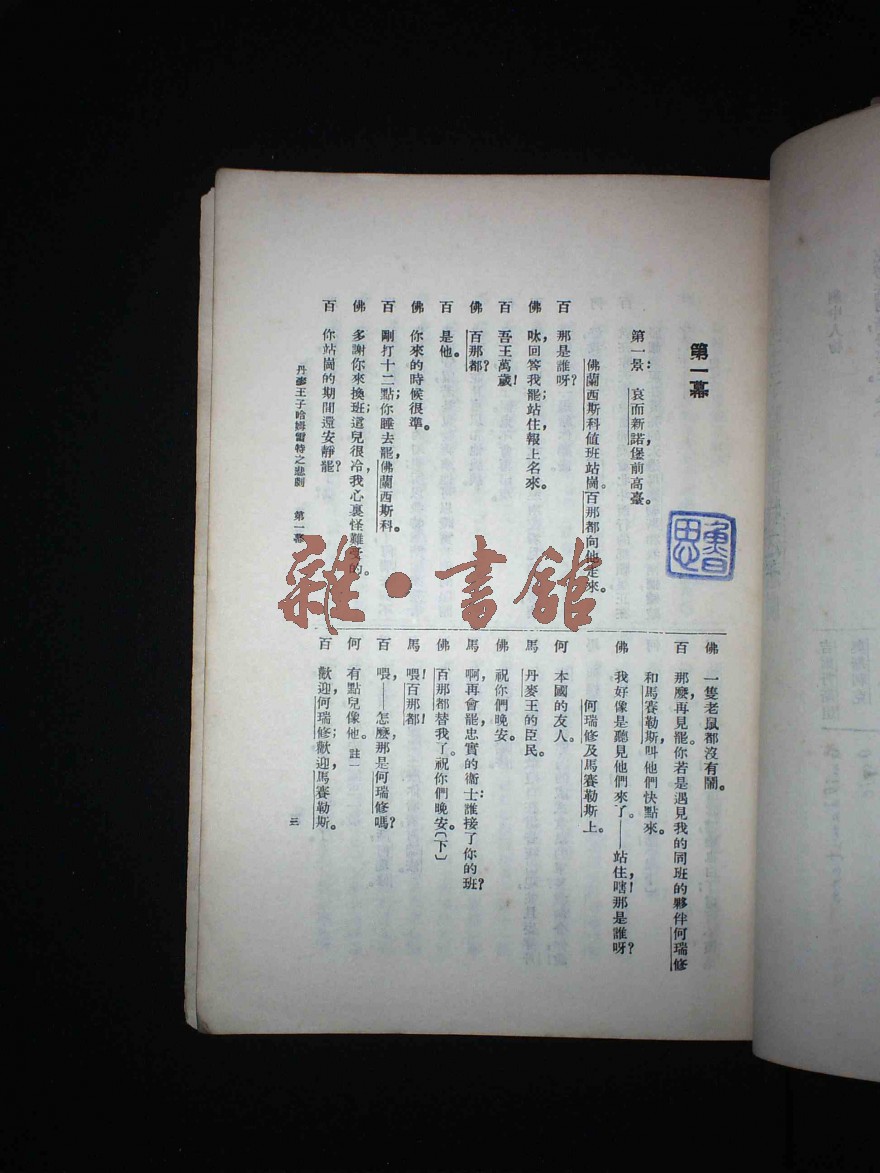 第一幕
第一景：哀而新諾堡前高臺。
佛蘭西斯科值班站崗。百那都向他走來。
百　那是誰呀？
佛　呔，回答我罷；站住，報上名來。
百　吾王萬歲！
佛　百那都？
百　是他。
佛　你來的時候很準。
百　剛打十二點；你睡去罷，佛蘭西斯科。
佛　多謝你來換班；這兒很冷，我心裏怪難受的。
百　你站崗的期間還安靜罷？
佛　一隻老鼠都沒有鬧。
百　那麼，再見罷。你若是遇見我的同班的夥伴何瑞修
和馬賽勒斯，叫他們快點來。
佛　我好像是聽見他們來了。——站住，嘻！那是誰呀？
何瑞修及馬賽勒斯上。
何　本國的友人。
馬　丹麥王的臣民。
佛　祝你們晚安。
馬　啊，再會罷，忠實的衞士：誰接了你的班？
佛　百那都替我了。祝你們晚安。〔下〕
馬　喂！百那都！
百　喂，——怎麼，那是何瑞修嗎？
何　有點兒像他。註一
百　歡迎，何瑞修；歡迎，馬賽勒斯。
丹麥王子哈姆雷特之悲劇　第一幕
三
雜·書館
魯思